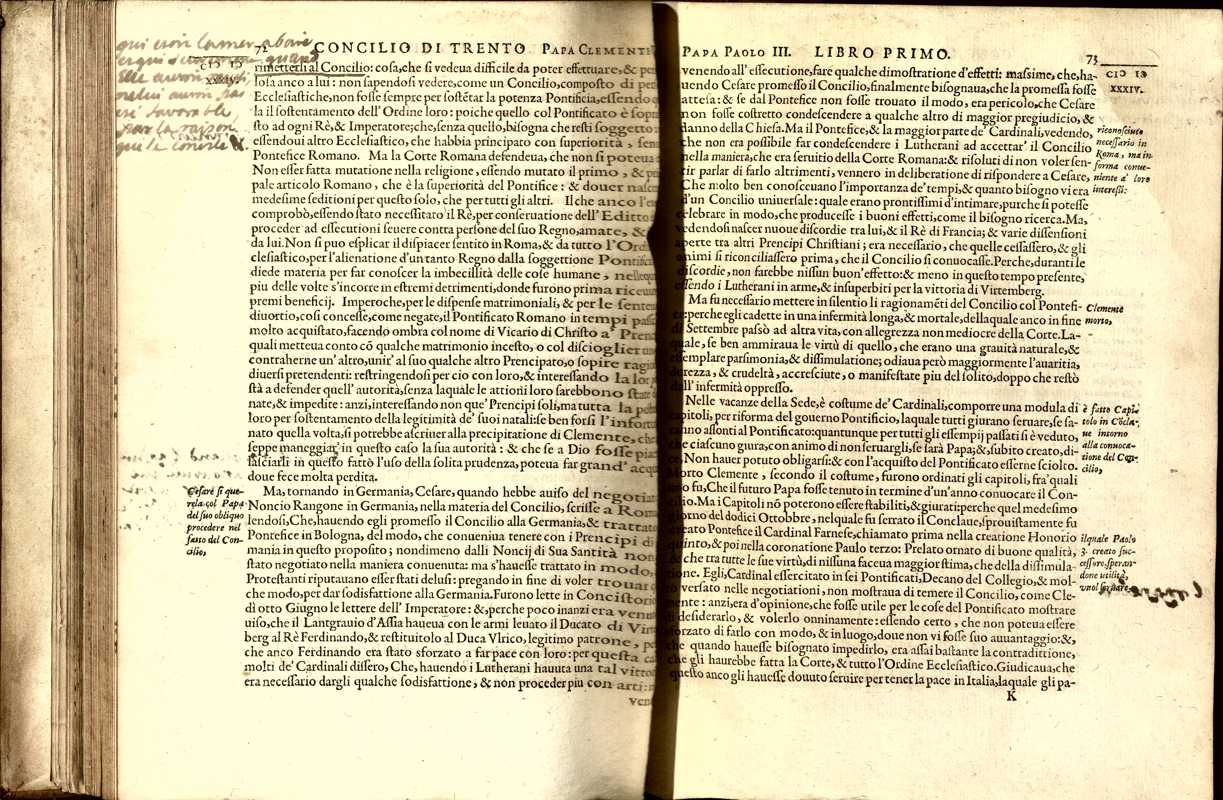 72 CONCILIO DI TRENTO PAPA CLEMENTE
CIƆ IƆ
XXXIV.
rimetterli al Concilio: cosa, che si vedeua difficile da poter effettuare, &
losa anco a lui: non sapendosi vedere, come un Concilio, composto di
Ecclesiastiche, non fosse sempre per sostẽtar la potenza Pontificia, essendo
la il sostentamento dell' Ordine loro: poiche quello col Pontificato è
sto ad ogni Rè, & Imperatore; che, senza quello, bisogna che resti soggetto:
essendoui altro Ecclesiastico, che habbia principato con superiorità,
Pontefice Romano. Ma la Corte Romana defendeua, che non si poteua
Non esser fatta mutatione nella religione, essendo mutato il primo, &
pale articolo Romano, che è la superiorità del Pontifice: & douer
medesime seditioni per questo solo, che per tutti gli altri. Il che anco
comprobò, essendo stato necessitato il Rè, per conseruatione dell' Editto
proceder ad essecutioni seuere contra persone del suo Regno, amate, &
da lui. Non si puo esplicar il dispiacer sentito in Roma, & da tutto
clesiastico, per l'alienatione d'un tanto Regno dalla soggettione
diede materia per far conoscer la imbecillità delle cose humane,
piu delle volte s'incorre in estremi detrimenti, donde furono prima
premi beneficij. Imperoche, per le dispense matrimoniali, & per le
diuortio, cosi concesse, come negate, il Pontificato Romano in tempi
molto acquistato, facendo ombra col nome di Vicario di Christo a'
quali metteua conto cõ qualche matrimonio incesto, o col discioglier
contraherne un' altro, unir' al suo qualche altro Prencipato, o sopire
diuersi pretendenti: restringendosi per cio con loro, & interessando la
stà a defender quell' autorità, senza laquale le attioni loro sarebbono
nate, & impedite: anzi, interessando non que' Prencipi soli, ma tutta la
loro per sostentamento della legitimità de' suoi natali: se ben forsi
nato quella volta, si potrebbe ascriuer alla precipitation di Clemente, che
seppe maneggiar in questo caso la sua autorità: & che se a Dio fosse
lasciarli in questo fatto l'uso della solita prudenza, poteua far grand'
doue fece molta perdita.
Cesare si que-
rela col Papa
del suo obliquo
procedere nel
fatto del Con-
cilio,
Ma, tornando in Germania, Cesare, quando hebbe auiso del
Noncio Rangone in Germania, nella materia del Concilio, scrisse a
lendosi, Che, hauendo egli promesso il Concilio alla Germania, & trattato
Pontefice in Bologna, del modo, che conueniua tenere con i Prencipi di
mania in questo proposito; nondimeno dalli Noncij di Sua Santità non
stato negotiato nella maniera conuenuta: ma s'hauesse trattato in modo,
Protestanti riputauano esser stati delusi: pregando in fine di voler
che modo, per dar sodisfattione alla Germania. Furono lette in Concistorio
dì otto Giugno le lettere dell' Imperatore: &, perche poco inanzi era
uiso, che il Lantgrauio d'Assia haueua con le armi leuato il Ducato di
berg al Rè Ferdinando, & restituitolo al Duca Vlrico, legitimo patrone,
che anco Ferdinando era stato sforzato a far pace con loro: per questa
molti de' Cardinali dissero, Che, hauendo i Lutherani hauuta una tal
era necessario dargli qualche sodisfattione, & non proceder piu con
PAPA PAOLO III. LIBRO PRIMO. 73
CIƆ IƆ
XXXIV.
venendo all' essecutione, fare qualche dimostratione d'effetti: massime, che, ha-
uendo Cesare promesso il Concilio, finalmente bisognaua, che la promessa fosse
attesa: & se dal Pontefice non fosse trouato il modo, era pericolo, che Cesare
non fosse costretto condescendere a qualche altro di maggior pregiudicio, &
danno della Chiesa. Ma il Pontefice, & la maggior parte de' Cardinali, vedendo,
che non era possibile far condescendere i Lutherani ad accettar' il Concilio
nella maniera, che era seruitio della Corte Romana: & risoluti di non voler sen-
tir parlar di farlo altrimenti, vennero in deliberatione di rispondere a Cesare,
Che molto ben conosceuano l'importanza de' tempi, & quanto bisogno vi era
d'un Concilio uniuersale: quale erano prontissimi d'intimare, purche si potesse
celebrare in modo, che producesse i buoni effetti, come il bisogno ricerca. Ma,
vedendosi nascer nuoue discordie tra lui, & il Rè di Francia; & varie dissensioni
aperte tra altri Prencipi Christiani; era necessario, che quelle cessassero, & gli
animi si riconciliassero prima, che il Concilio si conuocasse. Perche, duranti le
discordie, non farebbe nissun buon'effetto: & meno in questo tempo presente,
essendo i Lutherani in arme, & insuperbiti per la vittoria di Virtemberg.
riconosciuto
necessario in
Roma, ma in
forma conue-
niente a' loro
interessi:
Ma fu necessario mettere in silentio li ragionamẽti del Concilio col Pontefi-
ce: perche egli cadette in una infermità longa, & mortale, dellaquale anco in fine
di Settembre passò ad altra vita, con allegrezza non mediocre della Corte. La-
quale, se ben ammiraua le virtù di quello, che erano una grauità naturale, &
essemplare parsimonia, & dissimulatione; odiaua però maggiormente l'auaritia,
durezza, & crudeltà, accresciute, o manifestate piu del solito, doppo che restò
dall' infermità oppresso.
Clemente
morto,
Nelle vacanze della Sede, è costume de' Cardinali, comporre una modula di
capitoli, per riforma del gouerno Pontificio, laquale tutti giurano seruare, se sa-
ranno assonti al Pontificato: quantunque per tutti gli essempij passati si è veduto,
che ciascuno giura, con animo di non seruargli, se sarà Papa; &, subito creato, di-
ce, Non hauer potuto obligarsi: & con l'acquisto del Pontificato esserne sciolto.
Morto Clemente, secondo il costume, furono ordinati gli capitoli, fra' quali
uno fu, Che il futuro Papa fosse tenuto in termine d'un'anno conuocare il Con-
cilio. Ma i Capitoli nõ poterono esser stabiliti, & giurati: perche quel medesimo
giorno del dodici Ottobbre, nelquale fu serrato il Conclaue, sprouistamente fu
creato Pontefice il Cardinal Farnese, chiamato prima nella creatione Honorio
quinto, & poi nella coronatione Paulo terzo: Prelato ornato di buone qualità,
& che tra tutte le sue virtù, di nissuna faceua maggior stima, che della dissimula-
tione. Egli, Cardinal essercitato in sei Pontificati, Decano del Collegio, & mol-
to versato nelle negotiationi, non mostraua di temere il Concilio, come Cle-
mente: anzi, era d'opinione, che fosse utile per le cose del Pontificato mostrare
di desiderarlo, & volerlo onninamente: essendo certo, che non poteua essere
sforzato di farlo con modo, & in luogo, doue non vi fosse suo auuantaggio: &,
che quando hauesse bisognato impedirlo, era assai bastante la contradittione,
che gli haurebbe fatta la Corte, & tutto l'Ordine Ecclesiastico. Giudicaua, che
questo anco gli hauesse douuto seruire per tener la pace in Italia, laquale gli pa-
è fatto Capi-
tolo in Cõcla-
ue intorno
alla conuoca-
tione del Con-
cilio,
ilquale Paolo
3. creato suc-
cessore, speran-
done utilità,
K